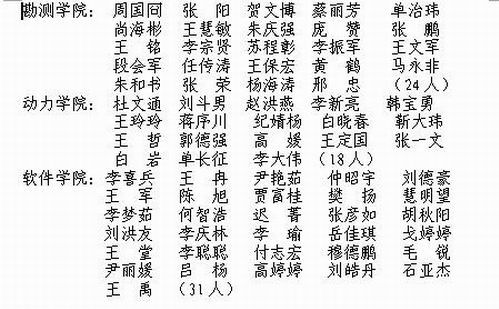 勘测学院： 周国冏 张 阳 贺文博 蔡丽芳 单治玮
尚海彬 王慧敏 朱庆强 庞 赞 张 鹏
王 铭 李宗贤 苏程彰 李振军 王文军
段会军 任传涛 王保宏 黄 鹤 马永非
朱和书 张 荣 杨海涛 邢 忠 (24人)
动力学院： 杜文通 刘斗男 赵洪燕 李新亮 韩宝勇
王玲玲 蒋序川 纪婧杨 白晓春 靳大玮
王 哲 郭德强 高 媛 王定国 张一文
白 岩 单长征 李大伟 (18人)
软件学院： 李喜兵 王 冉 尹艳茹 仲昭宇 刘德豪
王 军 陈 旭 贾富桂 樊 扬 慧明望
李梦茹 何智浩 迟 菁 张彦如 胡秋阳
刘洪友 李庆林 李 瑜 岳佳琪 戈婷婷
王 堂 李聪聪 付志宏 穆德鹏 毛 锐
尹丽媛 吕 杨 高婷婷 刘皓丹 石亚杰
王 禹 (31人)